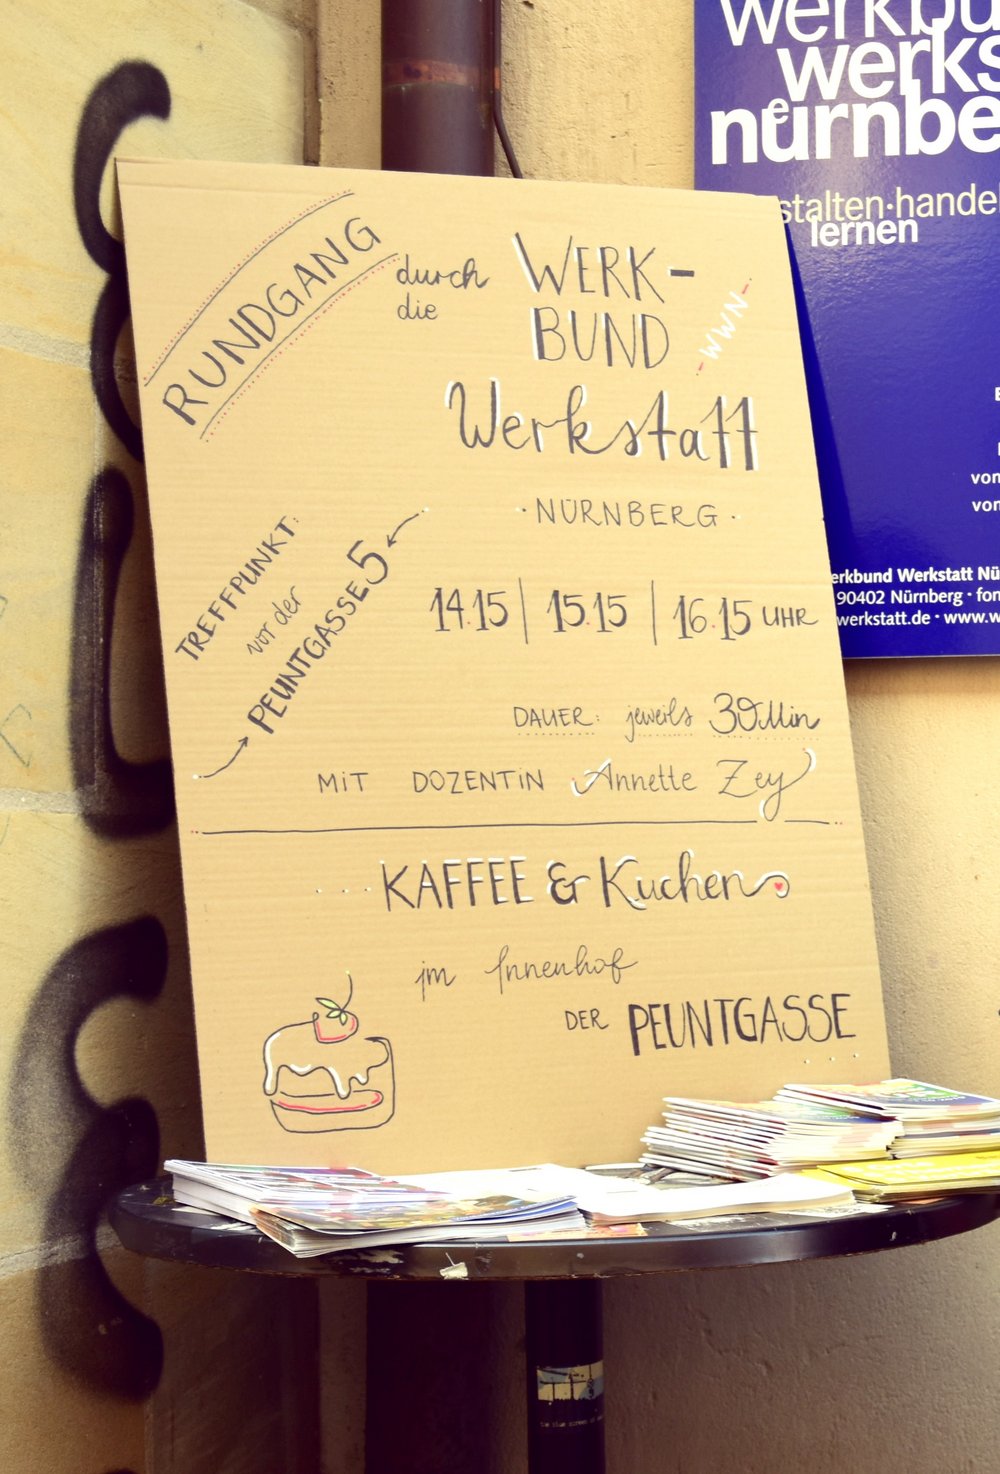 werkbu
werks
nürnbe
stalten·hande
lernen
RUNDGANG
durch
die
WERK-
BUND
-WWN-
Werkstatt
·NÜRNBERG·
TREFFPUNKT:
vor der
PEUNTGASSE 5
14.15 | 15.15 | 16.15 UHR
DAUER: jeweils 30 Min
MiT DOZENTiN Annette Zey
...KAFFEE & Kuchen
im Innenhof
DER PEUNTGASSE
...
von
von
erkbund Werkstatt Nü
90402 Nürnberg · fon
werkstatt.de · www.w